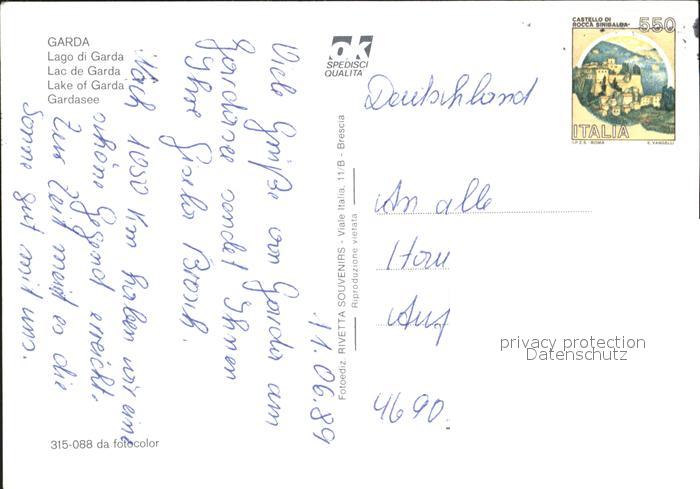 GARDA
Lago di Garda
Lac de Garda
Lake of Garda
Gardasee
ok
SPEDISCI
QUALITA
CASTELLO DI
ROCCA SINIBALDA
550
ITALIA
I.P.Z.S. - ROMA
E. VANGELLI
11.06.89
Viele Grüße von Garda am
Gardasee sendet Ihnen
Ihre Gisela
Nach 1050 km haben wir eine
schöne Gegend erreicht.
Zur Zeit meint es die
Sonne gut mit uns.
Fotoediz. RIVETTA SOUVENIRS - Viale Italia, 11/B - Brescia
Riproduzione vietata
Deutschland
An alle
4690
privacy protection
Datenschutz
315-088 da fotocolor